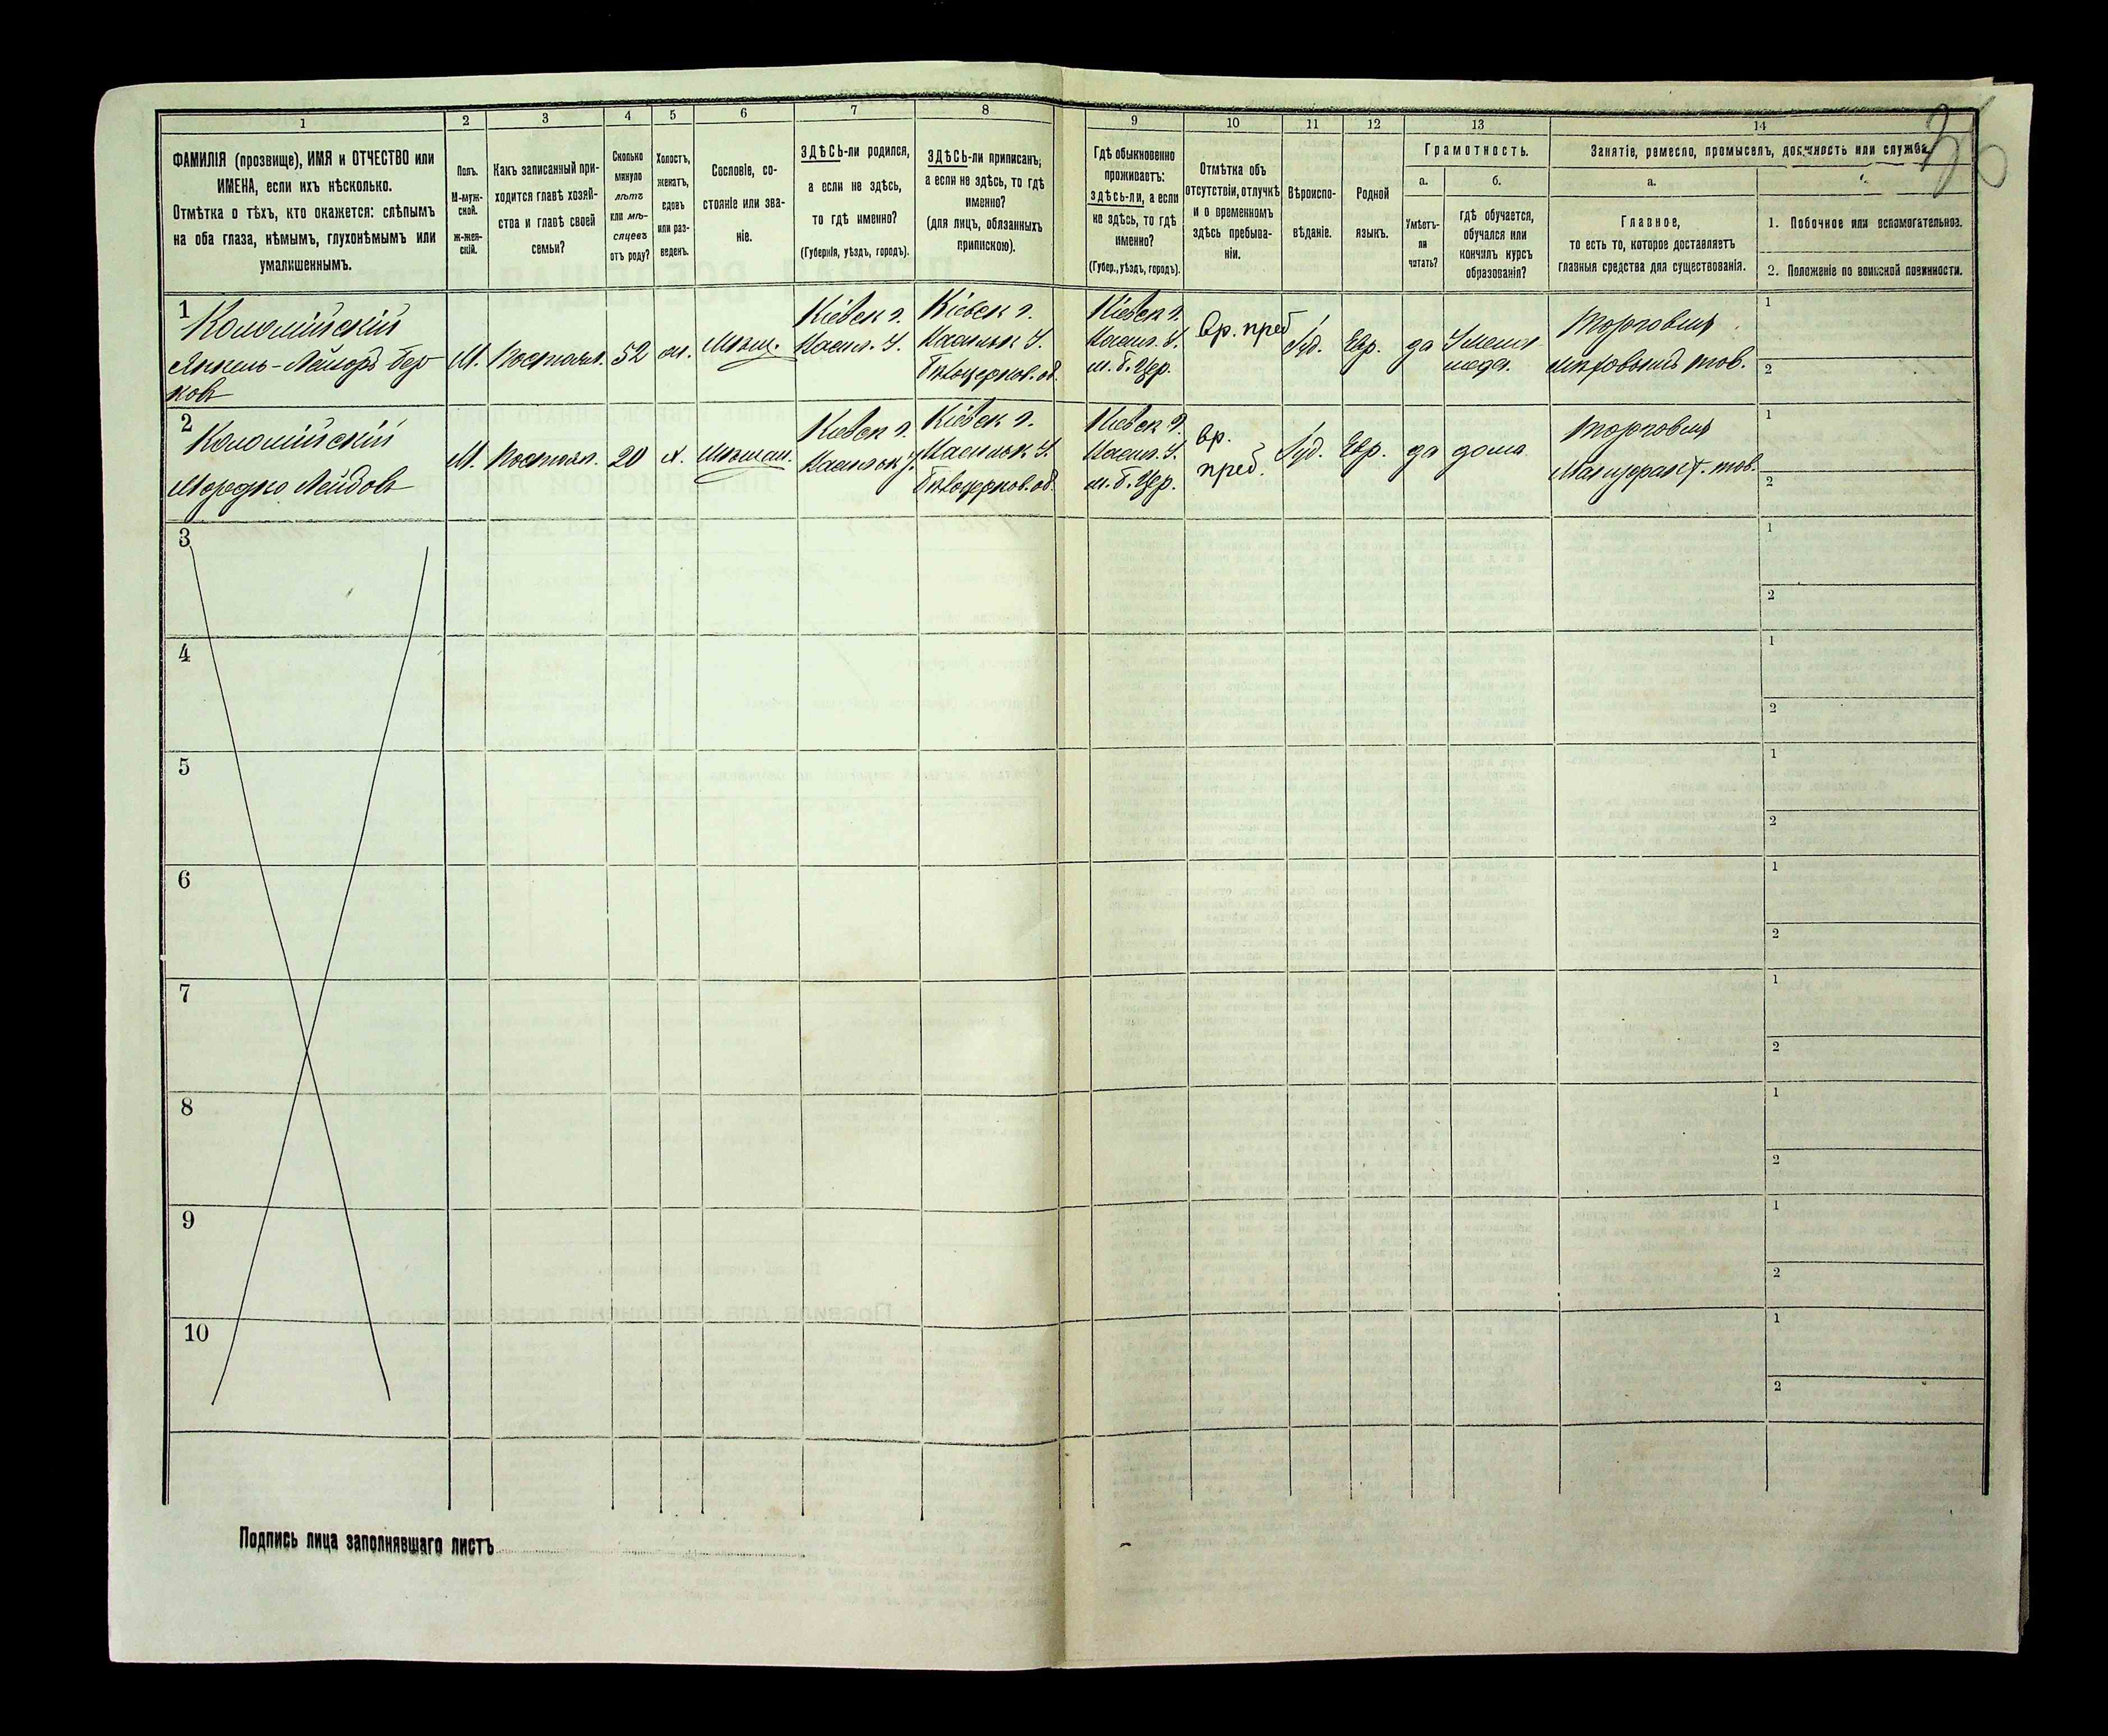 36
1
2
3
4
5
6
7
8
9
10
11
12
13
14
ФАМИЛІЯ (прозвище), ИМЯ и ОТЧЕСТВО или
ИМЕНА, если ихъ нѣсколько.
Отмѣтка о тѣхъ, кто окажется: слѣпымъ
на оба глаза, нѣмымъ, глухонѣмымъ или
умалишеннымъ.
Полъ.
М-муж-
ской.
Ж-жен-
скій.
Какъ записанный при-
ходится главѣ хозяй-
ства и главѣ своей
семьи?
Сколько
минуло
лѣтъ
или мѣ-
сяцевъ
отъ роду?
Холостъ,
женатъ,
вдовъ
или раз-
веденъ.
Сословіе, со-
стояніе или зва-
ніе.
ЗДѢСЬ-ли родился,
а если не здѣсь,
то гдѣ именно?
(Губернія, уѣздъ, городъ).
ЗДѢСЬ-ли приписанъ,
а если не здѣсь, то гдѣ
именно?
(для лицъ, обязанныхъ
припискою).
Гдѣ обыкновенно
проживаетъ:
ЗДѢСЬ-ли, а если
не здѣсь, то гдѣ
именно?
(Губер., уѣздъ, городъ).
Отмѣтка объ
отсутствіи, отлучкѣ
и о временномъ
здѣсь пребыва-
ніи.
Вѣроиспо-
вѣданіе.
Родной
языкъ.
Грамотность.
а.
Умѣетъ-
ли
читать?
б.
гдѣ обучается,
обучался или
кончилъ курсъ
образованія?
Занятіе, ремесло, промыселъ, должность или служба.
а.
Главное,
то есть то, которое доставляетъ
главныя средства для существованія.
1. Побочное или вспомогательное.
2. Положеніе по воинской повинности.
1
Коломійскій
Берковъ
М.
Постоял.
52
Мѣщ.
Кіевск г.
Васил. У.
Кіевск г.
Васильк У.
Бѣлоцерков. об.
Кіевск г.
Васил. У.
м. Б. Цер.
вр. преб
Іуд.
Евр.
да
Торговля
мѣховымъ тов.
1
2
2
Коломійскій
М.
Постоял.
20
Мѣщан.
Кіевск г.
Васильк у.
Кіевск г.
Васильк У.
Бѣлоцерков. об.
Кіевск г.
Васил. У.
м. Б. Цер.
вр.
преб.
Іуд.
Евр.
да
дома
Торговля
Мануфакт. тов.
1
2
3
1
2
4
1
2
5
1
2
6
1
2
7
1
2
8
1
2
9
1
2
10
1
2
Подпись лица заполнявшаго листъ